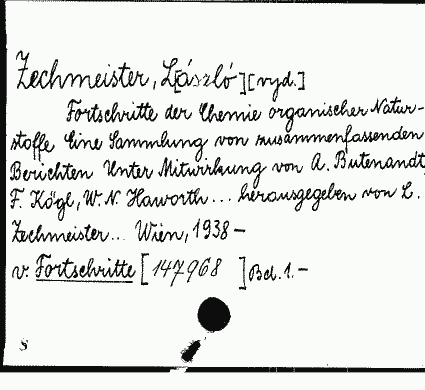 Zechmeister, L[ászló] [vyd.]
Fortschritte der Chemie organischer Natur-
stoffe Eine Sammlung von zusammenfassenden
Berichten Unter Mitwirkung von A. Butenandt,
F. Kögl, W. N. Haworth... herausgegeben von L.
Zechmeister... Wien, 1938 -
v. Fortschritte [147968 ] Bd. 1. -
S